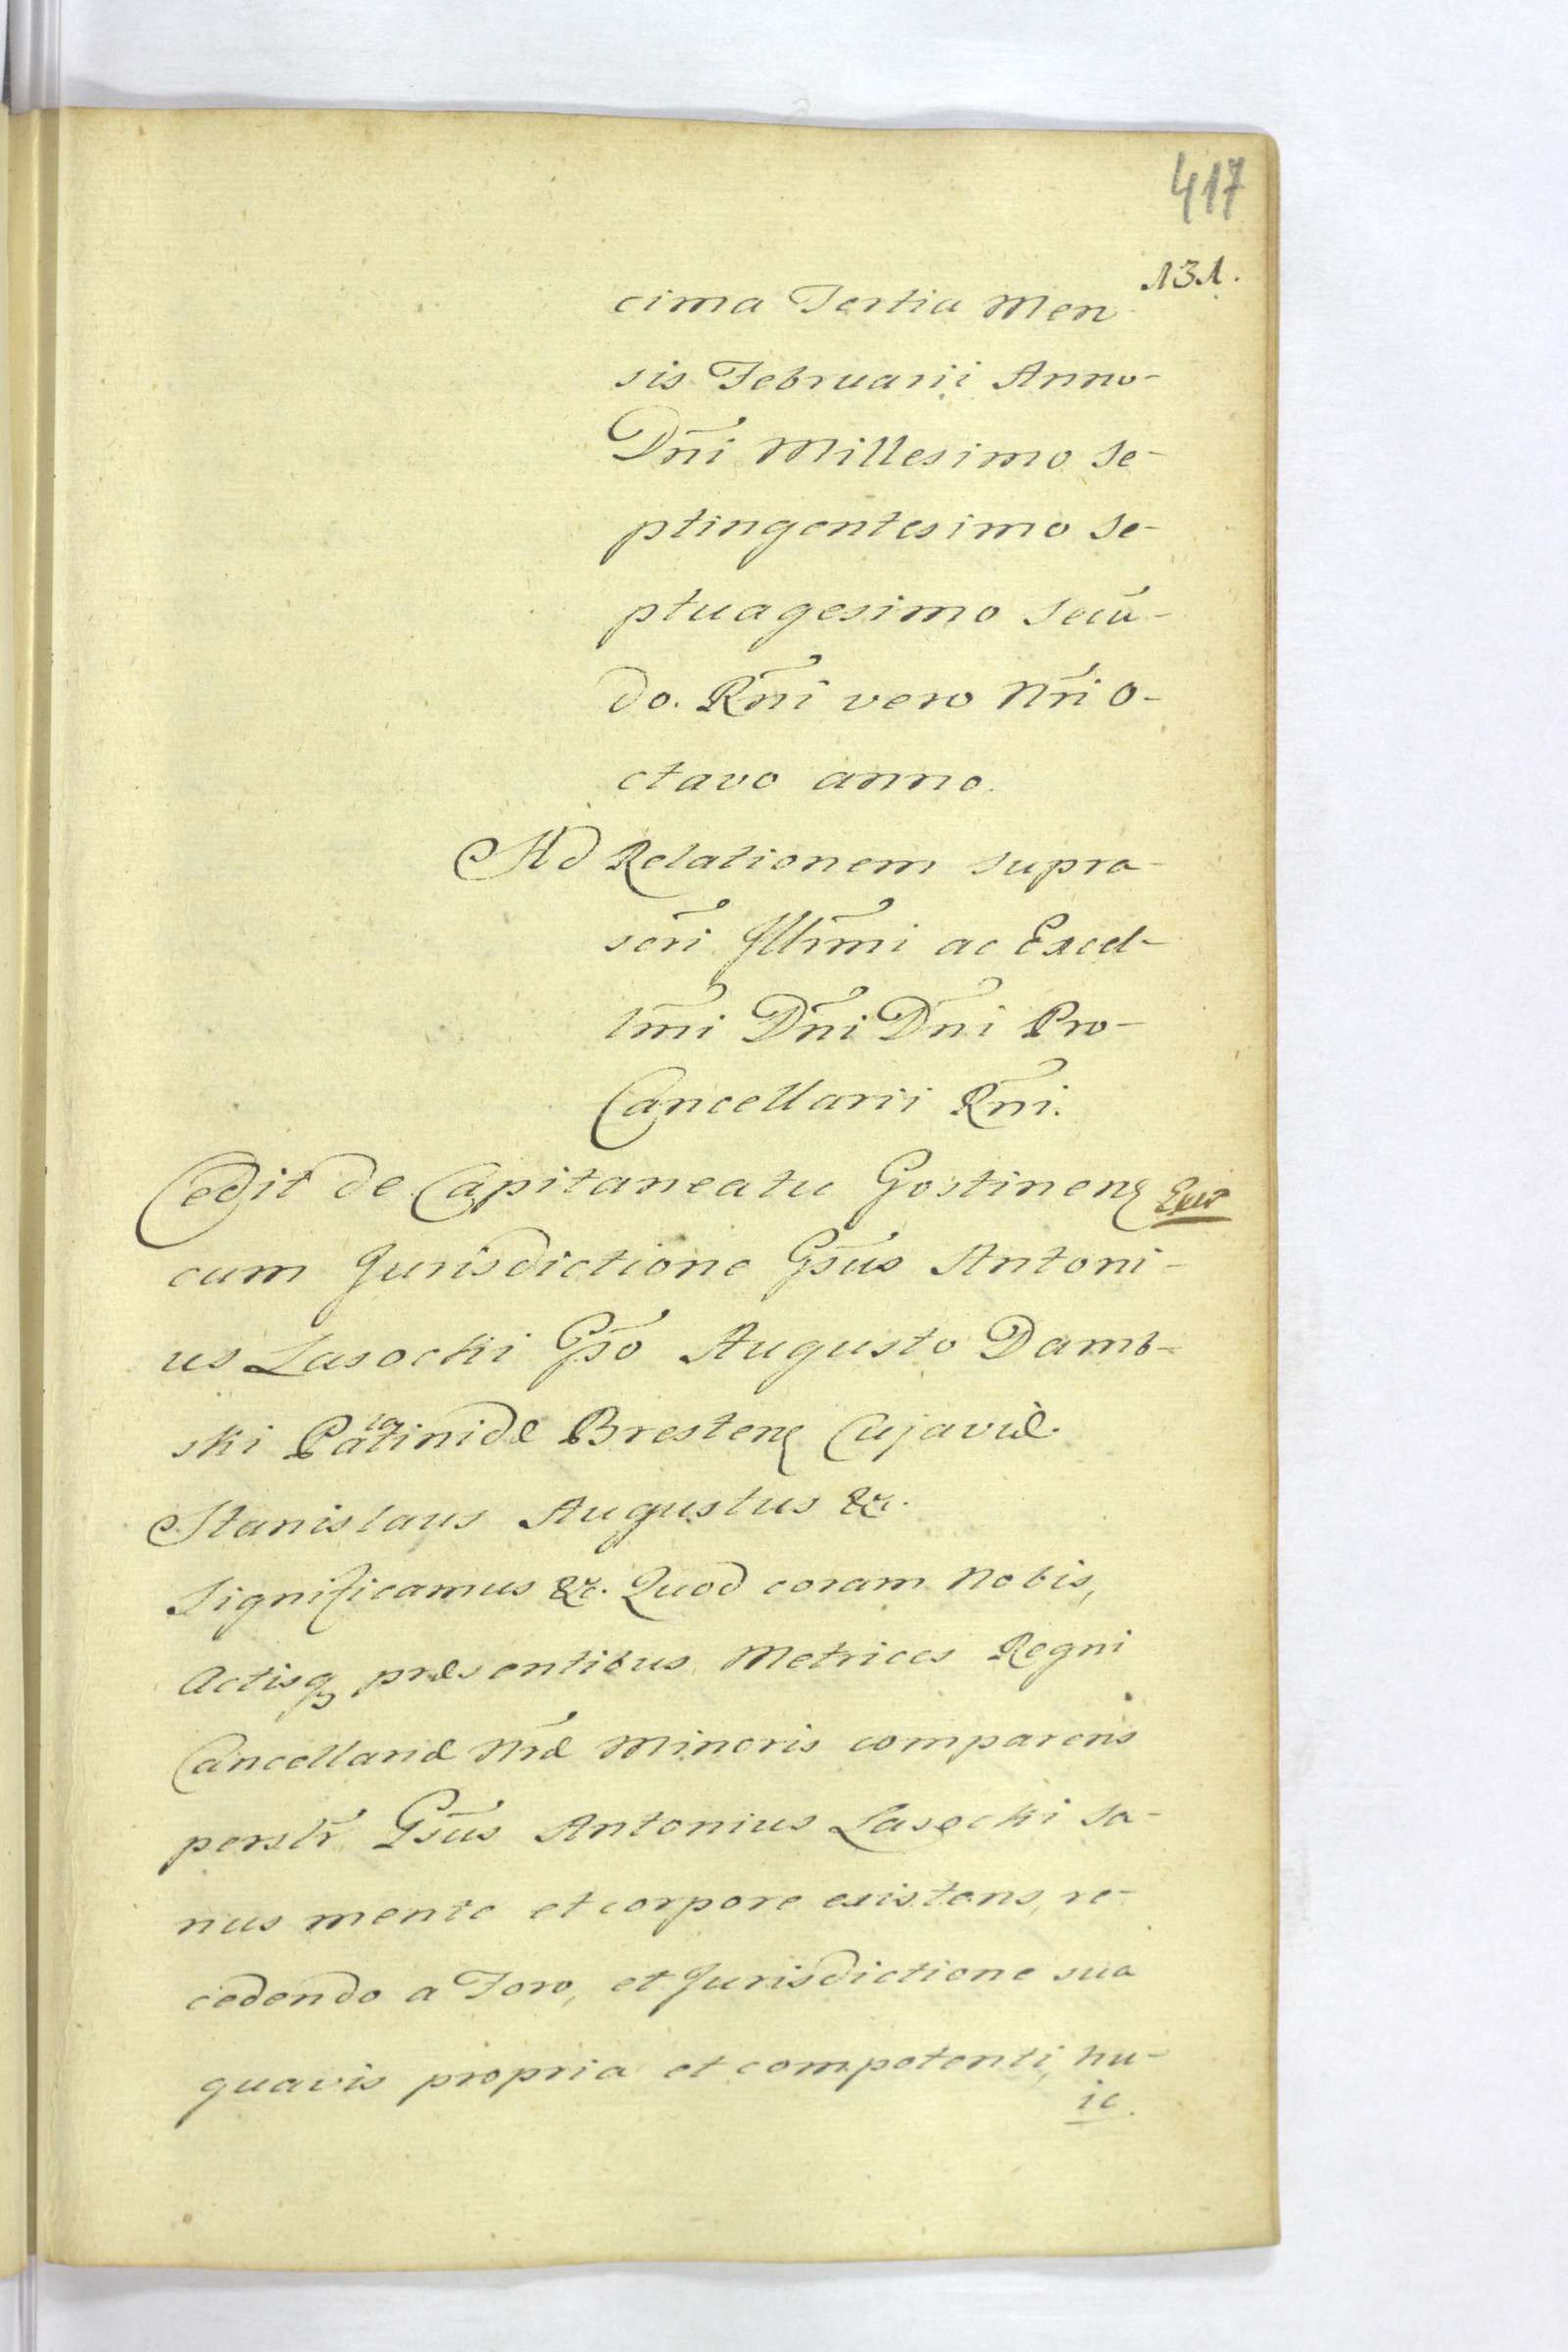 417
131.
cima Tertia Men
sis Februarii Anno-
Dn̄i Millesimo Se-
ptingentesimo Se-
ptuagesimo Secū-
do. Rn̄i vero Nr̄i O-
ctavo anno.
Ad Relationem supra-
scr̄i Illr̄mi ac Excel-
lm̄i Dn̄i Dn̄i Pro-
Cancellarii Rn̄i.
Cedit de Capitaneatu Gostinenȝ
cum Jurisdictione Gs̄us Antoni-
us Lasocki Gs̄o Augusto Damb-
ski Palatinidæ Brestenȝ Cujaviæ.
Stanislaus Augustus &c.
Significamus &c. Quod coram Nobis,
Actisqȝ præsentibus Metrices Regni
Cancellariæ Nr̄æ Minoris comparens
persl̄r Gs̄us Antonius Lasocki sa-
nus mente et corpore existens, re-
cedendo a Foro, et Jurisdictione sua
quavis propria et competenti, hu-
ic